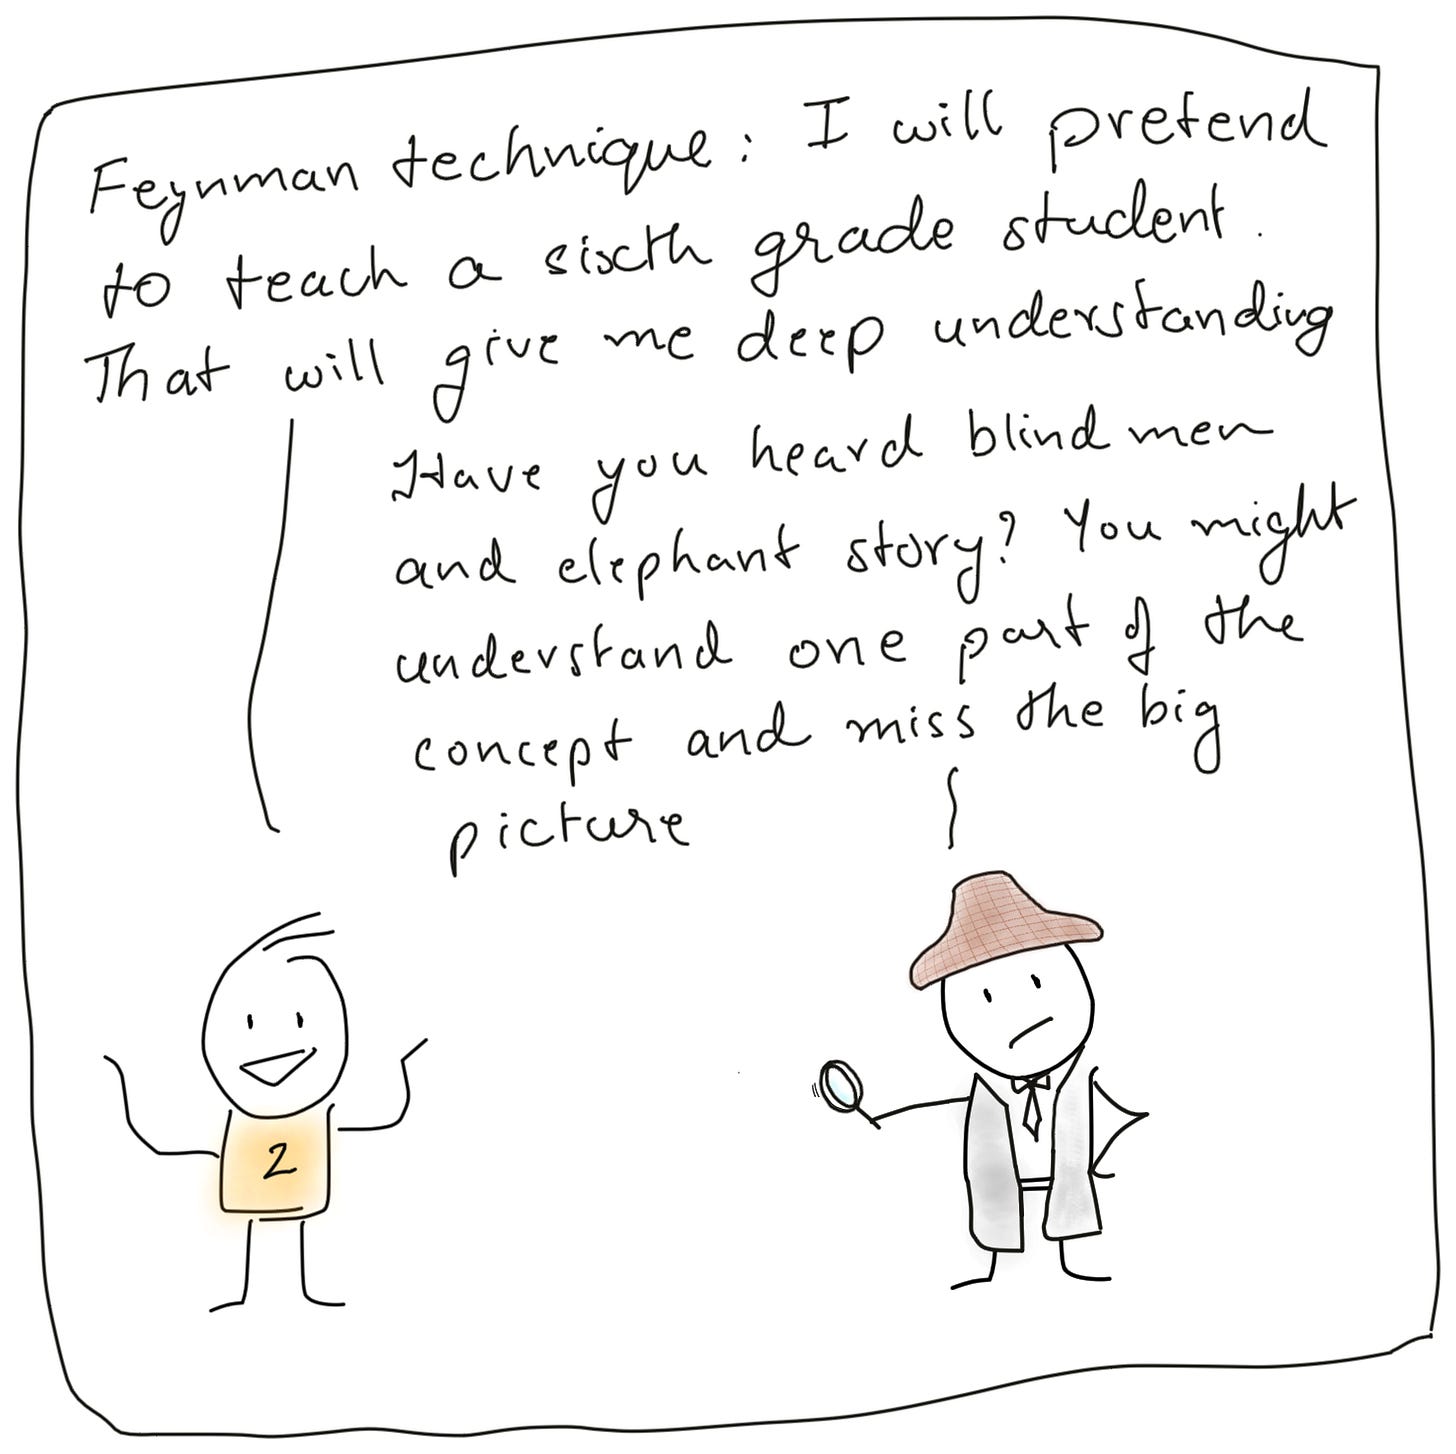 Feynman technique: I will pretend
to teach a sixth grade student.
That will give me deep understanding
Have you heard blind men
and elephant story? You might
understand one part of the
concept and miss the big
picture
2